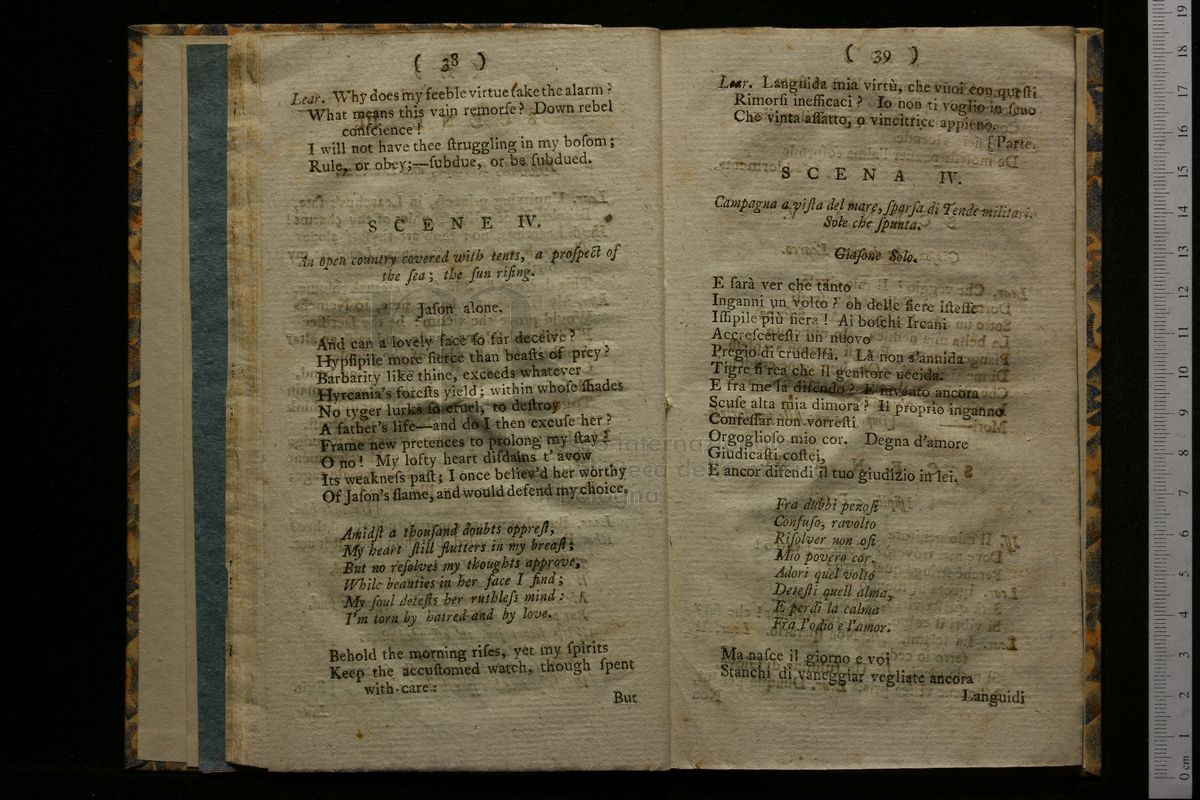 ( 38 )
Lear. Why does my feeble virtue ſake the alarm ?
What means this vain remorſe ? Down rebel
conſcience !
I will not have thee ſtruggling in my boſom ;
Rule, or obey ;—ſubdue, or be ſubdued.
SCENE IV.
An open country covered with tents, a proſpect of
the ſea ; the ſun riſing.
Jaſon alone.
And can a lovely face ſo far deceive ?
Hypſipile more fierce than beaſts of prey ?
Barbarity like thine, exceeds whatever
Hyrcania's foreſts yield ; within whoſe ſhades
No tyger lurks ſo cruel, to deſtroy
A father's life—and do I then excuſe her ?
Frame new pretences to prolong my ſtay ?
O no ! My lofty heart diſdains t' avow
Its weakneſs paſt ; I once believ'd her worthy
Of Jaſon's flame, and would defend my choice.
Amidſt a thouſand doubts oppreſt,
My heart ſtill flutters in my breaſt ;
But no reſolves my thoughts approve,
While beauties in her face I find ;
My ſoul deteſts her ruthleſs mind :
I'm torn by hatred and by love.
Behold the morning riſes, yet my ſpirits
Keep the accuſtomed watch, though ſpent
with care :
But
( 39 )
Lear. Languida mia virtù, che vuoi con queſti
Rimorſi inefficaci ? Io non ti voglio in ſeno
Che vinta affatto, o vincitrice appieno.
[Parte.
SCENA IV.
Campagna a viſta del mare, ſparſa di Tende militari.
Sole che ſpunta.
Giaſone Solo.
E ſarà ver che tanto
Inganni un volto ? oh delle fiere iſteſſe
Iſſipile più fiera ! Ai boſchi Ircani
Accreſcereſti un nuovo
Pregio di crudeltà. Là non s'annida
Tigre ſi rea che il genitore uccida.
E fra me la difendo ? E invento ancora
Scuſe alla mia dimora ? Il proprio inganno
Confeſſar non vorreſti
Orgoglioſo mio cor. Degna d'amore
Giudicaſti coſtei,
E ancor difendi il tuo giudizio in lei.
Fra dubbi penoſi
Confuſo, ravolto
Riſolver non oſi
Mio povero cor.
Adori quel volto
Deteſti quell alma,
E perdi la calma
Fra l'odio e l'amor.
Ma naſce il giorno e voi
Stanchi di vaneggiar vegliate ancora
Languidi